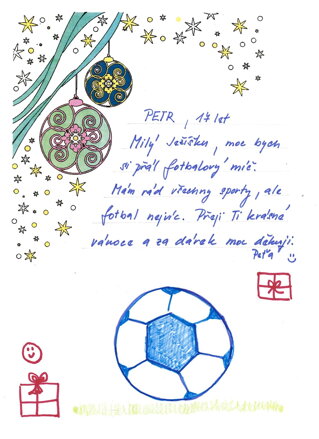 PETR, 17 let
Milý Ježíšku, moc bych
si přál fotbalový míč.
Mám rád všechny sporty, ale
fotbal nejvíc. Přeji Ti krásné
vánoce a za dárek moc děkuji.
Peťa